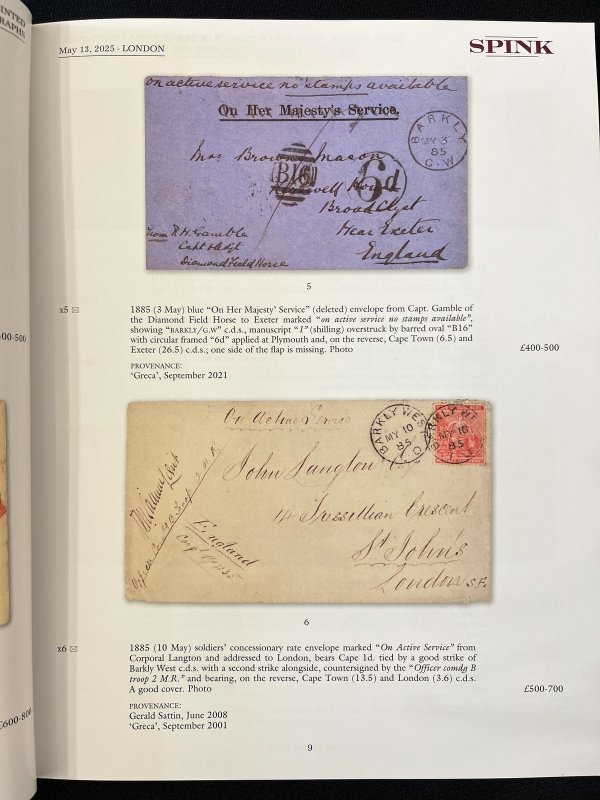 INTED
RAPHS
May 13, 2025 - LONDON
SPINK
on active service no stamps available
On Her Majesty's Service.
BARKLY
MY 3
85
G.W
Mrs Brown Mason
B16
6d
Broad Clyst
Near Exeter
England
From R.H. Gamble
Capt & Adjt
Diamond Field Horse
5
x5
1885 (3 May) blue “On Her Majesty’ Service” (deleted) envelope from Capt. Gamble of
the Diamond Field Horse to Exeter marked “on active service no stamps available”,
showing “BARKLY/G.W” c.d.s., manuscript “1” (shilling) overstruck by barred oval “B16”
with circular framed “6d” applied at Plymouth and, on the reverse, Cape Town (6.5) and
Exeter (26.5) c.d.s.; one side of the flap is missing. Photo
£400-500
PROVENANCE:
‘Greca’, September 2021
00-500
On Active Service
BARKLY WEST
MY 10
85
BARKLY WE
MY 10
85
John Langton
14 Tressillian Crescent
St John's
London S.E.
England
6
x6
1885 (10 May) soldiers’ concessionary rate envelope marked “On Active Service” from
Corporal Langton and addressed to London, bears Cape 1d. tied by a good strike of
Barkly West c.d.s. with a second strike alongside, countersigned by the “Officer comdg B
troop 2 M.R.” and bearing, on the reverse, Cape Town (13.5) and London (3.6) c.d.s.
A good cover. Photo
£500-700
PROVENANCE:
Gerald Sattin, June 2008
‘Greca’, September 2001
£600-800
9